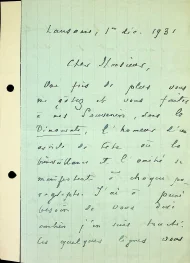 Lausanne, 1er dic. 1931
Cher Monsieur,
Une fois de plus vous
me gâtez et vous faites
à nos Pausanias, dans le
Dinamista, l'honneur d'un
article de tête où la
bienveillance et l'amitié se
manifestent à chaque
paragraphe. J'ai à peine
besoin de vous dire
combien j'en suis touché.
Ces quelques lignes vous